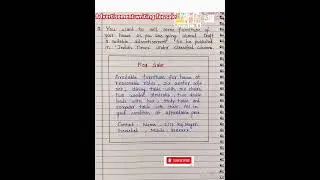 Advertisement writing for sale
Q You want to sell some furniture of
your house as you are going abroad. Draft
a suitable advertisement to be published
in 'Indian Times' under classified column.
For Sale
Available furniture for house at
reasonable rates, one leather sofa
set, dining table with six chairs,
two wooden almirahs, two double
beds with box, study table and
computer table with chair. All in
good condition at affordable price
Contact: Name, 2/12 Raj Nagar,
Mobile:
SUBSCRIBE